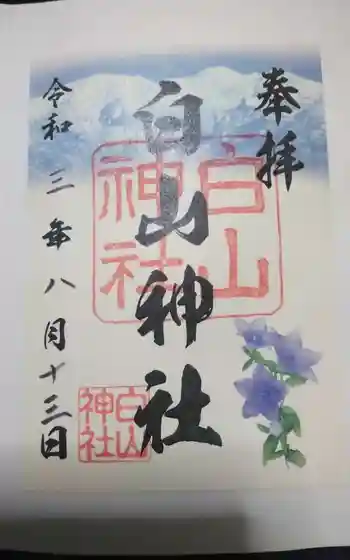 奉拝
白山神社
白山
神社
令和三年八月十三日
白山
神社